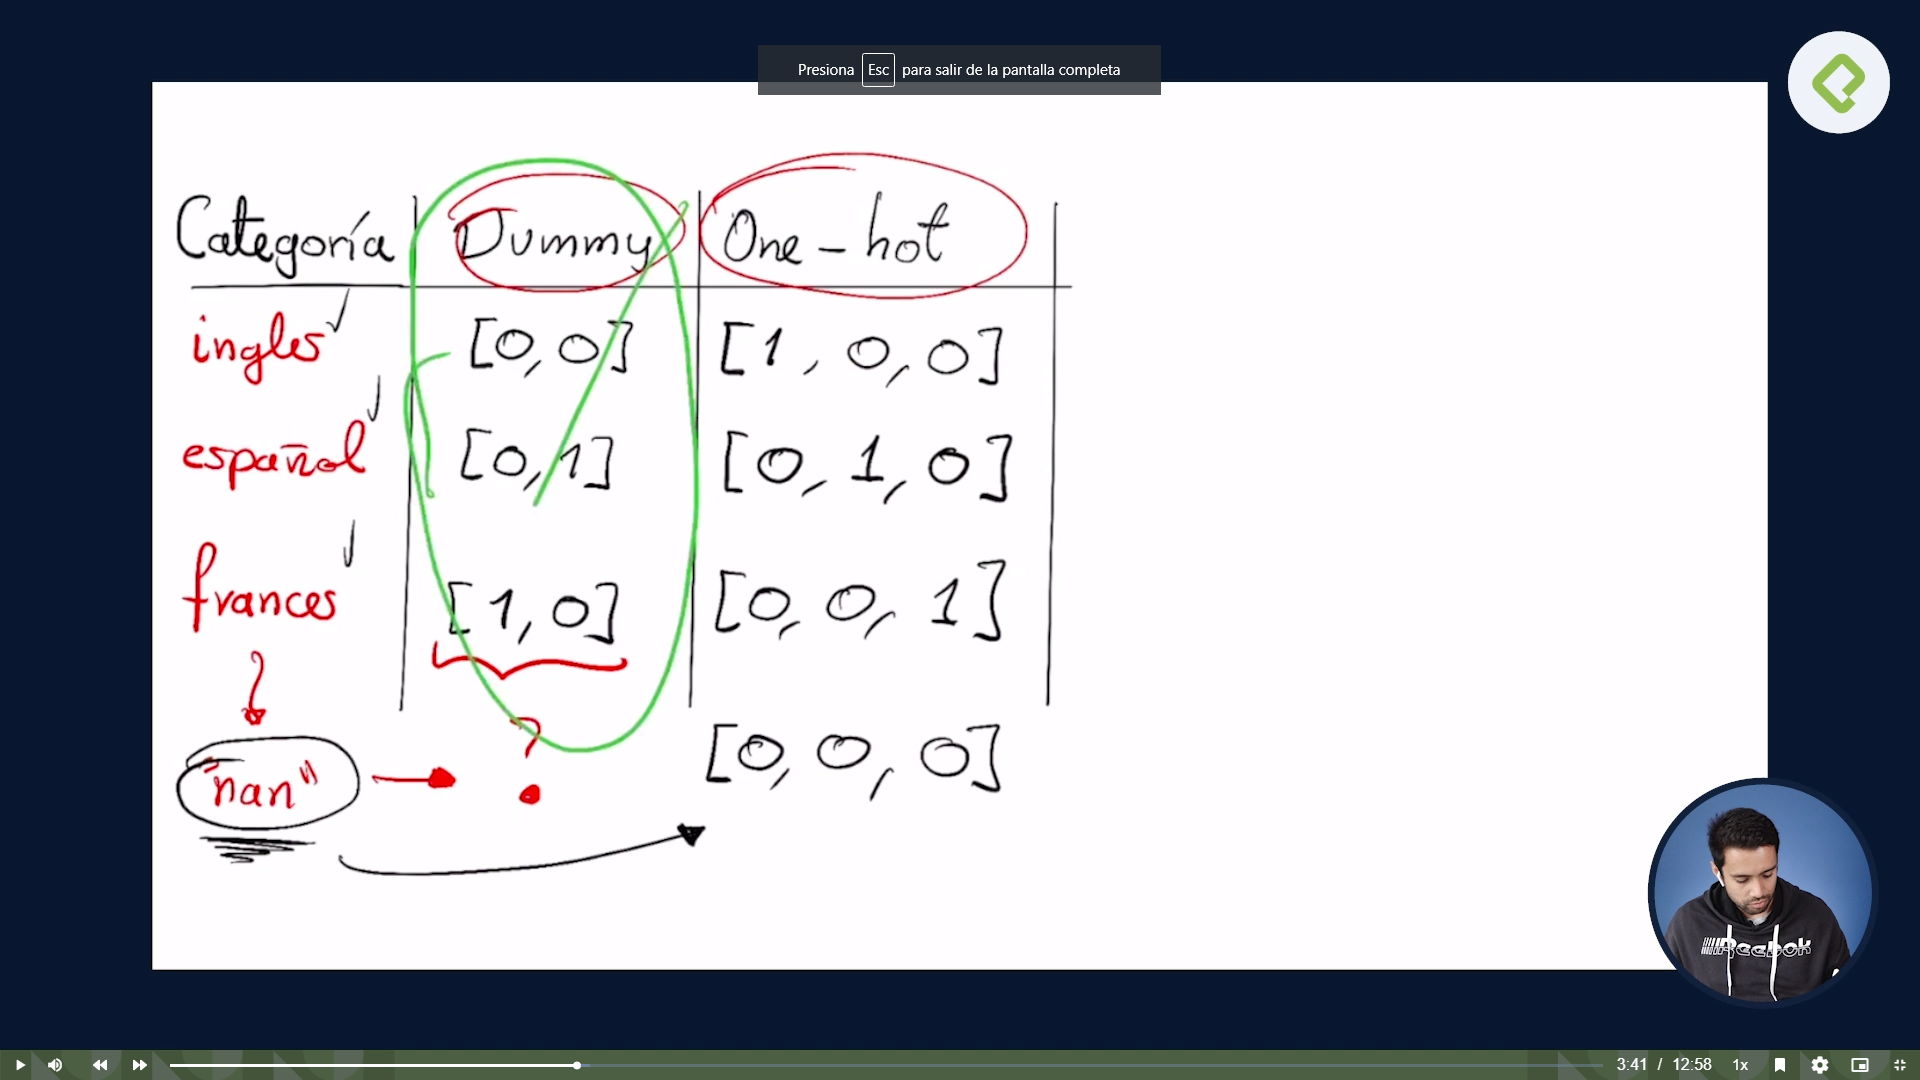 Presiona Esc para salir de la pantalla completa
Categoría Dummy One-hot
ingles [0,0] [1,0,0]
español [0,1] [0,1,0]
frances [1,0] [0,0,1]
?
"nan" [0,0,0]
Reebok
3:41 / 12:58 1x